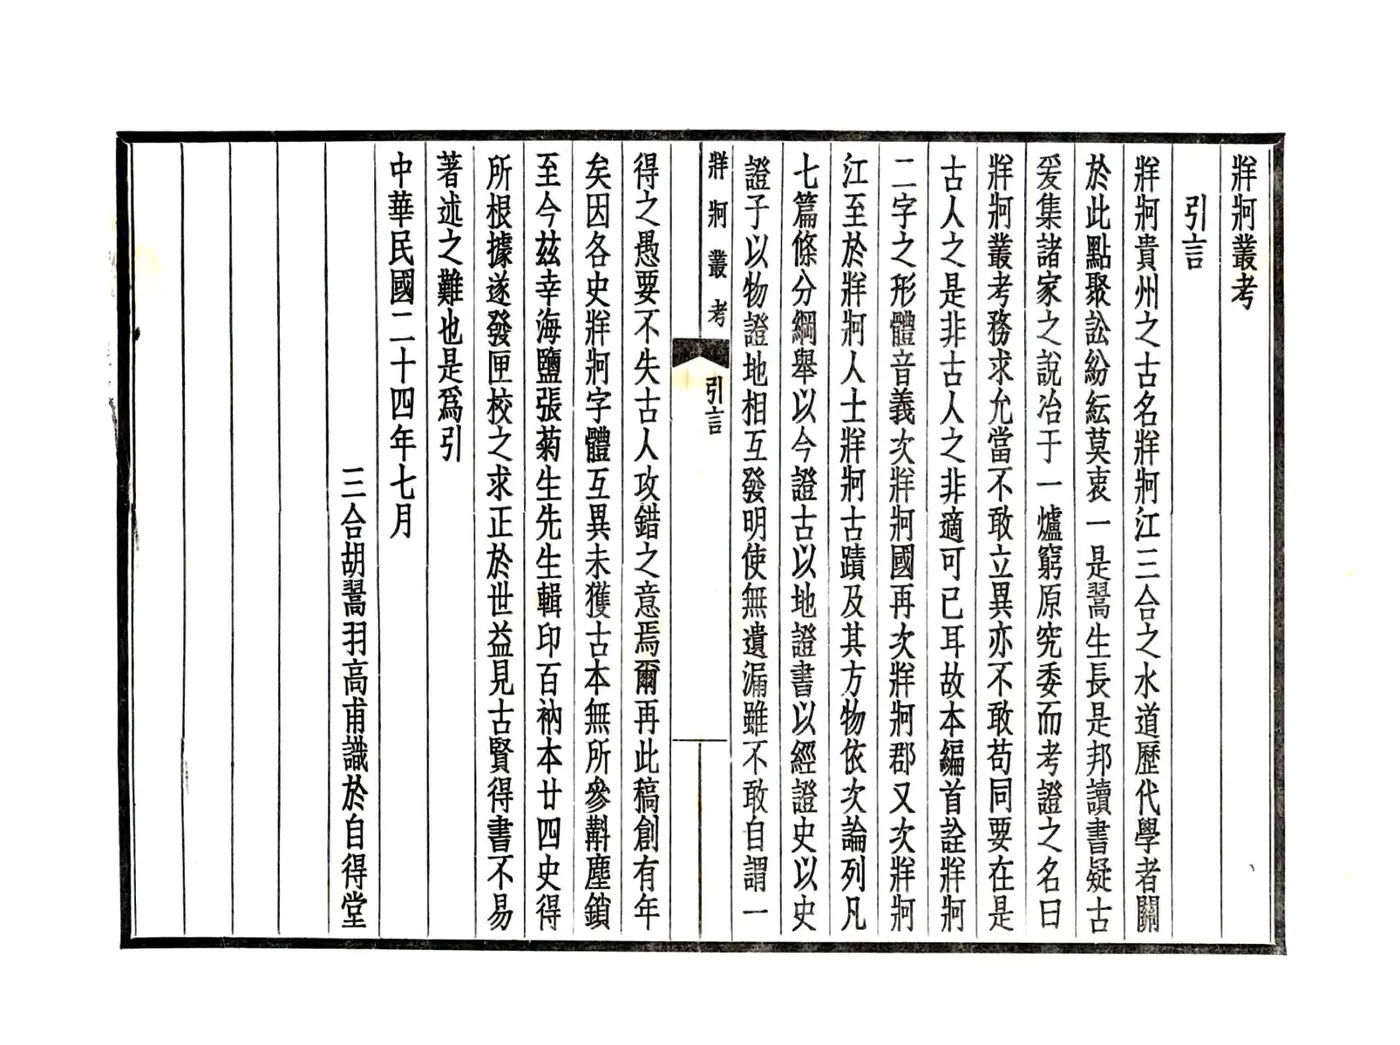 牂牁叢考
引言
牂牁貴州之古名牂牁江三合之水道歷代學者關
於此點聚訟紛紜莫衷一是翯生長是邦讀書疑古
爰集諸家之說冶于一爐窮原究委而考證之名曰
牂牁叢考務求允當不敢立異亦不敢苟同要在是
古人之是非古人之非適可已耳故本編首詮牂牁
二字之形體音義次牂牁國再次牂牁郡又次牂牁
江至於牂牁人士牂牁古蹟及其方物依次論列凡
七篇條分綱舉以今證古以地證書以經證史以史
證子以物證地相互發明使無遺漏雖不敢自謂一
牂牁叢考
引言
得之愚要不失古人攻錯之意焉爾再此稿創有年
矣因各史牂牁字體互異未獲古本無所參斠塵鎖
至今茲幸海鹽張菊生先生輯印百衲本廿四史得
所根據遂發匣校之求正於世益見古賢得書不易
著述之難也是爲引
中華民國二十四年七月
三合胡翯羽高甫識於自得堂